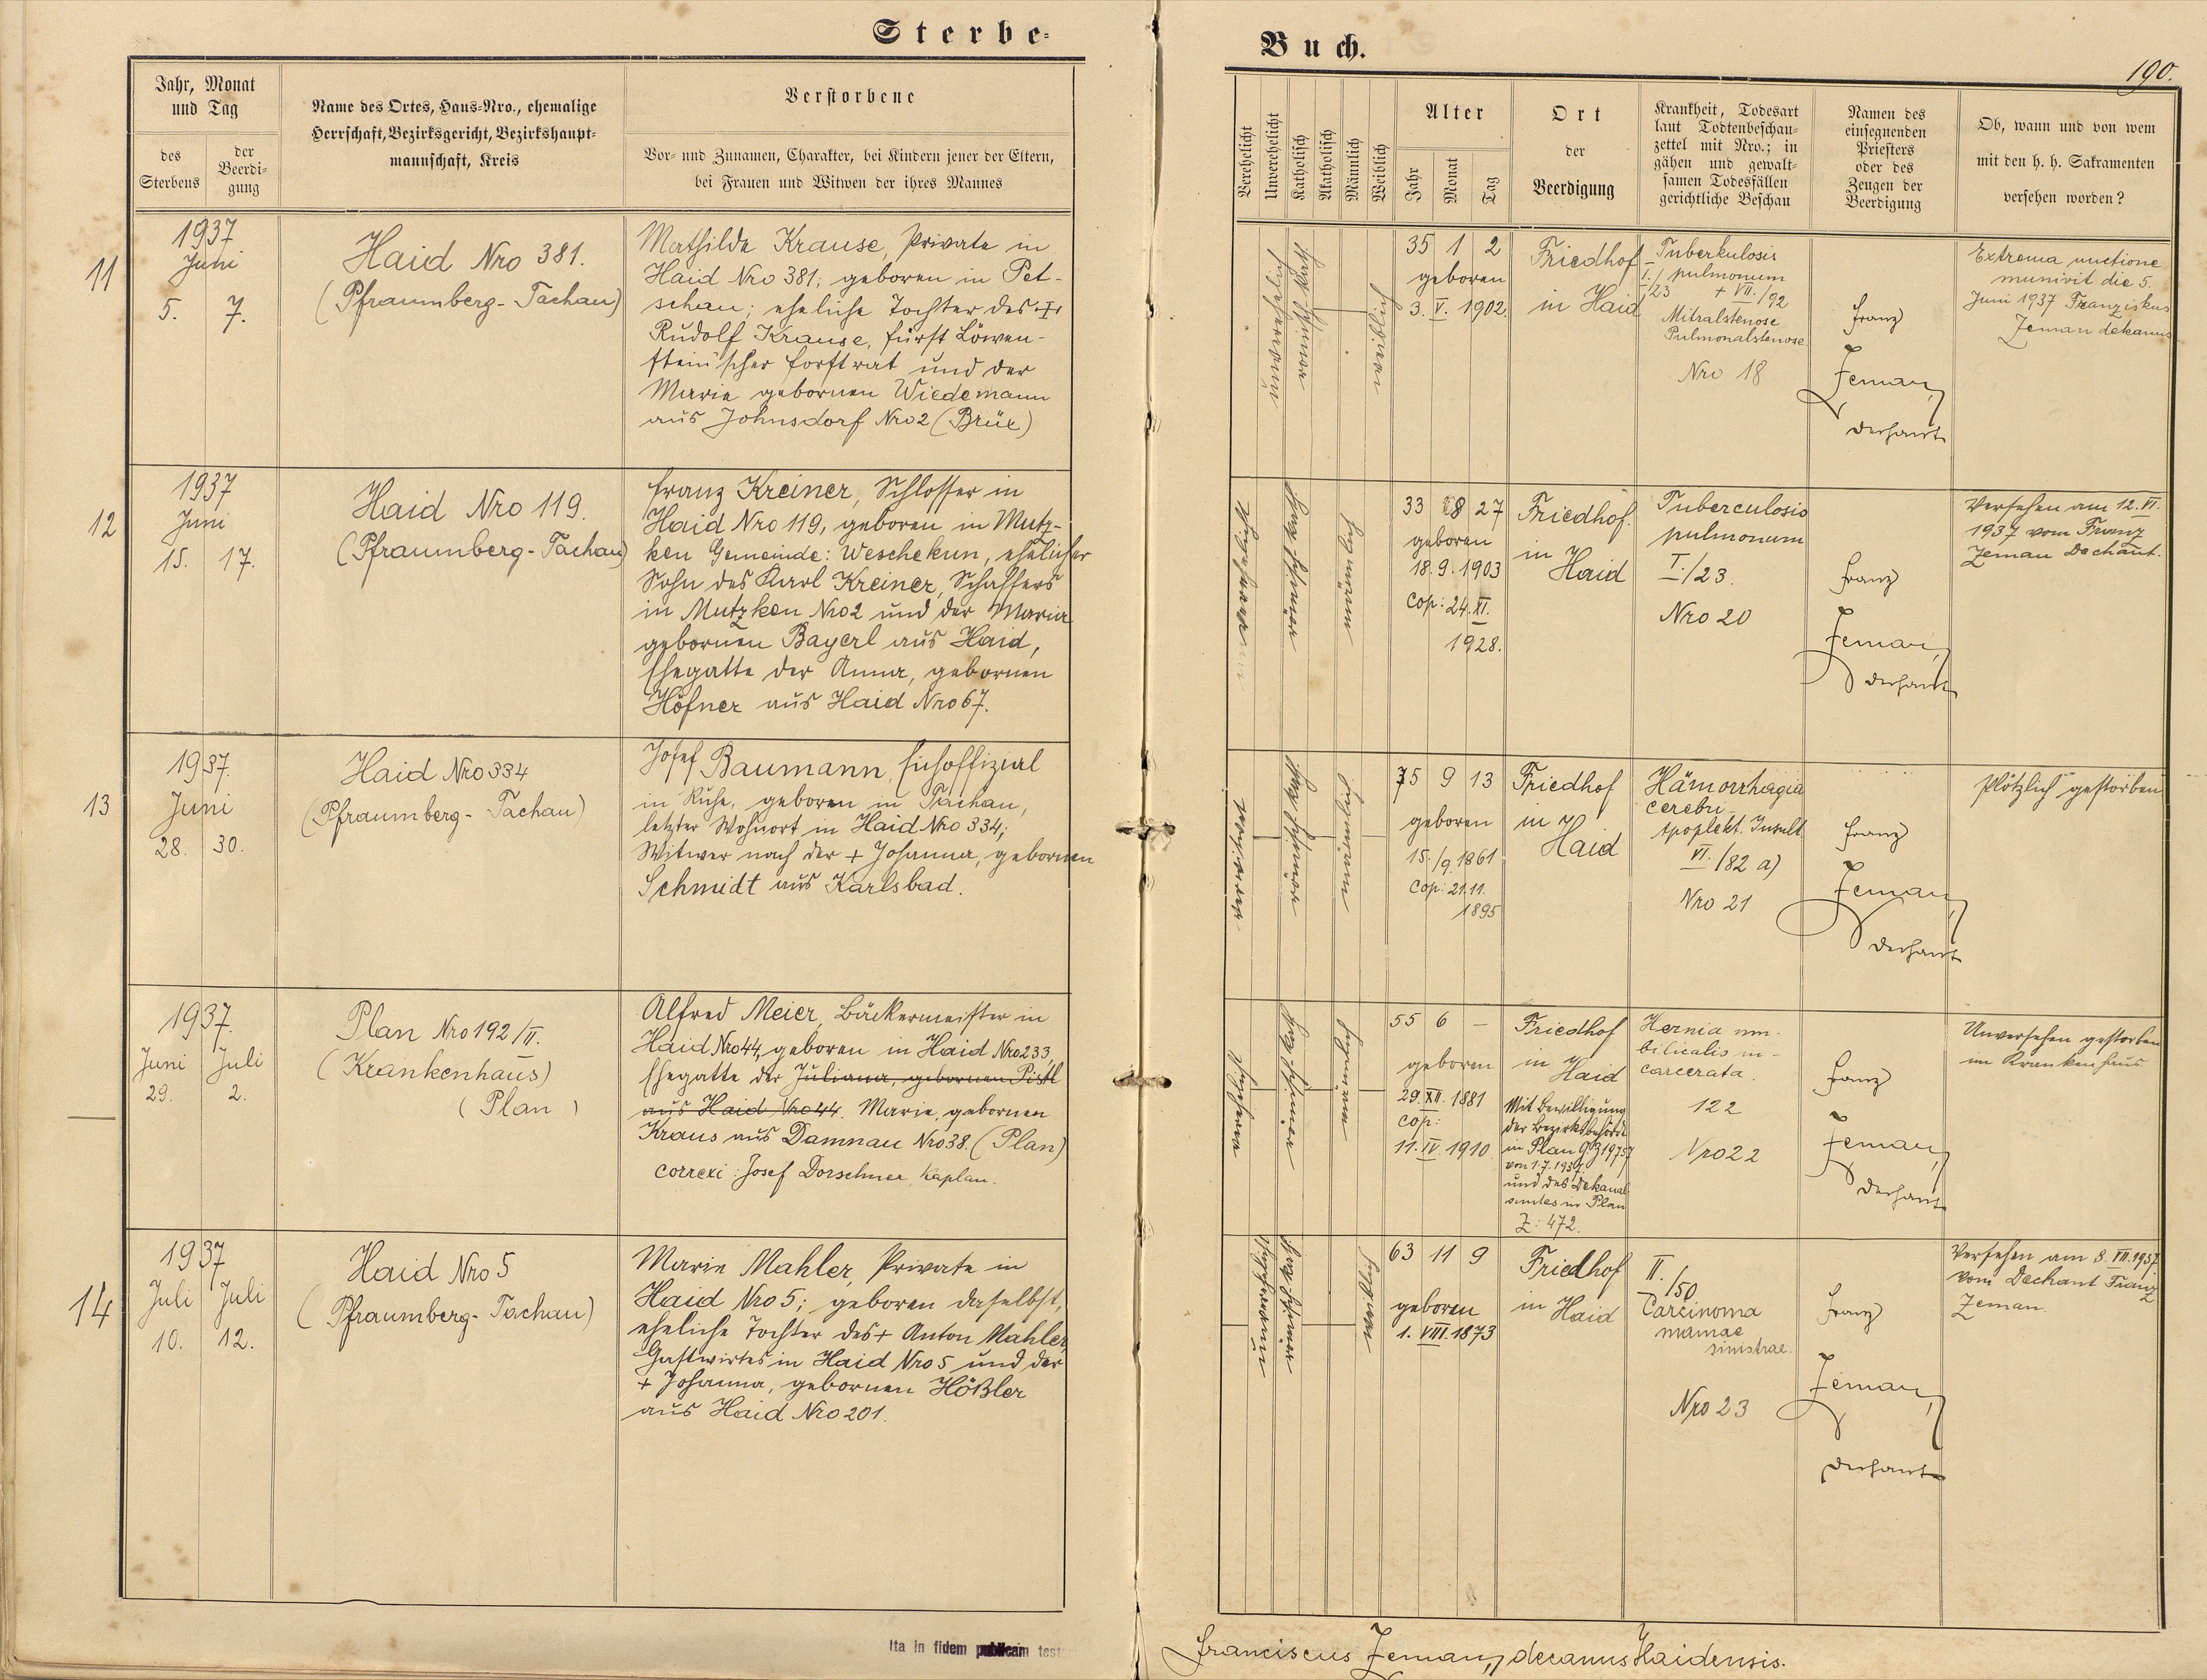 Sterbe-
Buch.
190.
Jahr, Monat
und Tag
des
Sterbens
der
Beerdi-
gung
Name des Ortes, Haus-Nro., ehemalige
Herrschaft, Bezirksgericht, Bezirkshaupt-
mannschaft, Kreis
Verstorbene
Vor- und Zunamen, Charakter, bei Kindern jener der Eltern,
bei Frauen und Witwen der ihres Mannes
Verehelicht
Unverehelicht
Katholisch
Akatholisch
Männlich
Weiblich
Alter
Jahr
Monat
Tag
Ort
der
Beerdigung
Krankheit, Todesart
laut Todtenbeschau-
zettel mit Nro.; in
gähen und gewalt-
samen Todesfällen
gerichtliche Beschau
Namen des
einsegnenden
Priesters
oder des
Zeugen der
Beerdigung
Ob, wann und von wem
mit den h. h. Sakramenten
versehen worden?
11
1937
Juni
5. 7.
Haid Nro 381.
(Pfraumberg-Tachau)
Mathilde Krause, Private in
Haid Nro 381; geboren in Pet-
schau; eheliche Tochter des
Rudolf Krause, fürst Löwen-
stein'scher Forstrat und der
Marie gebornen Wiedemann
aus Johnsdorf Nro 2 (Brüx)
35 1 2
geboren
3. V. 1902.
Friedhof
in Haid
Tuberkulosis
I./ pulmonum
/23 + VII./92
Mitralstenose
Pulmonalstenose
Nro 18
Franz
Zeman,
Dechant
Extrema unctione
munivit die 5.
Juni 1937 Franziskus
Zeman dekanus
12
1937
Juni
15. 17.
Haid Nro 119.
(Pfraumberg-Tachau)
Franz Kreiner, Schlosser in
Haid Nro 119, geboren in Mutz-
ken Gemeinde: Weschekun, ehelicher
Sohn des Karl Kreiner, Schaffers
in Mutzken Nro 2 und der Maria
gebornen Bayerl aus Haid,
Ehegatte der Anna, gebornen
Höfner aus Haid Nro 67.
33 8 27
geboren
18. 9. 1903
Cop: 24. XI.
1928.
Friedhof
in
Haid
Tuberculosis
pulmonum
I./23.
Nro 20
Franz
Zeman,
Dechant
Versehen am 12. VI.
1937 vom Franz
Zeman Dechant.
13
1937.
Juni
28. 30.
Haid Nro 334
(Pfraumberg-Tachau)
Josef Baumann,
in Ruhe, geboren in Tachau,
letzter Wohnort in Haid Nro 334;
Witwer nach der + Johanna, gebornen
Schmidt aus Karlsbad.
Witwer
75 9 13
geboren
15./9. 1861
Cop: 21.11.
1895
Friedhof
in
Haid
Hämorrhagia
cerebri
Apoplekt. Insult
VI./82 a)
Nro 21
Franz
Zeman,
Dechant
Plötzlich gestorben
1937.
Juni Juli
29. 2.
Plan Nro 192/II.
(Krankenhaus)
(Plan)
Alfred Meier, Bäckermeister in
Haid Nro 44, geboren in Haid Nro 233,
Ehegatte der Juliana, gebornen Pistl
aus Haid Nro 44. Marie, gebornen
Kraus aus Damnau Nro 38 (Plan)
correxi: Josef Dorschner, Kaplan.
55 6 –
geboren
29. XII. 1881
Cop:
11. IV. 1910
Friedhof
in
Haid
Mit Bewilligung
der Bezirksbehörde
in Plan
von 1.7.1937.
und des Dekanal-
amtes in Plan
Z: 472.
Hernia um-
bilicalis in-
carcerata.
122
Nro 22
Franz
Zeman,
Dechant
Unversehen gestorben
im Krankenhaus
14
1937
Juli Juli
10. 12.
Haid Nro 5
(Pfraumberg-Tachau)
Marie Mahler, Private in
Haid Nro 5; geboren daselbst,
eheliche Tochter des + Anton Mahler
Gastwirtes in Haid Nro 5 und der
+ Johanna, gebornen Hößler
aus Haid Nro 201.
63 11 9
geboren
1. VIII. 1873
Friedhof
in Haid
II.
/50.
Carcinoma
mamae
sinistrae.
Nro 23
Franz
Zeman,
Dechant
Versehen am 8. VII. 1937.
vom Dechant Franz
Zeman.
Ita in fidem publicam test
Franciscus Zeman, decanus Haidensis.